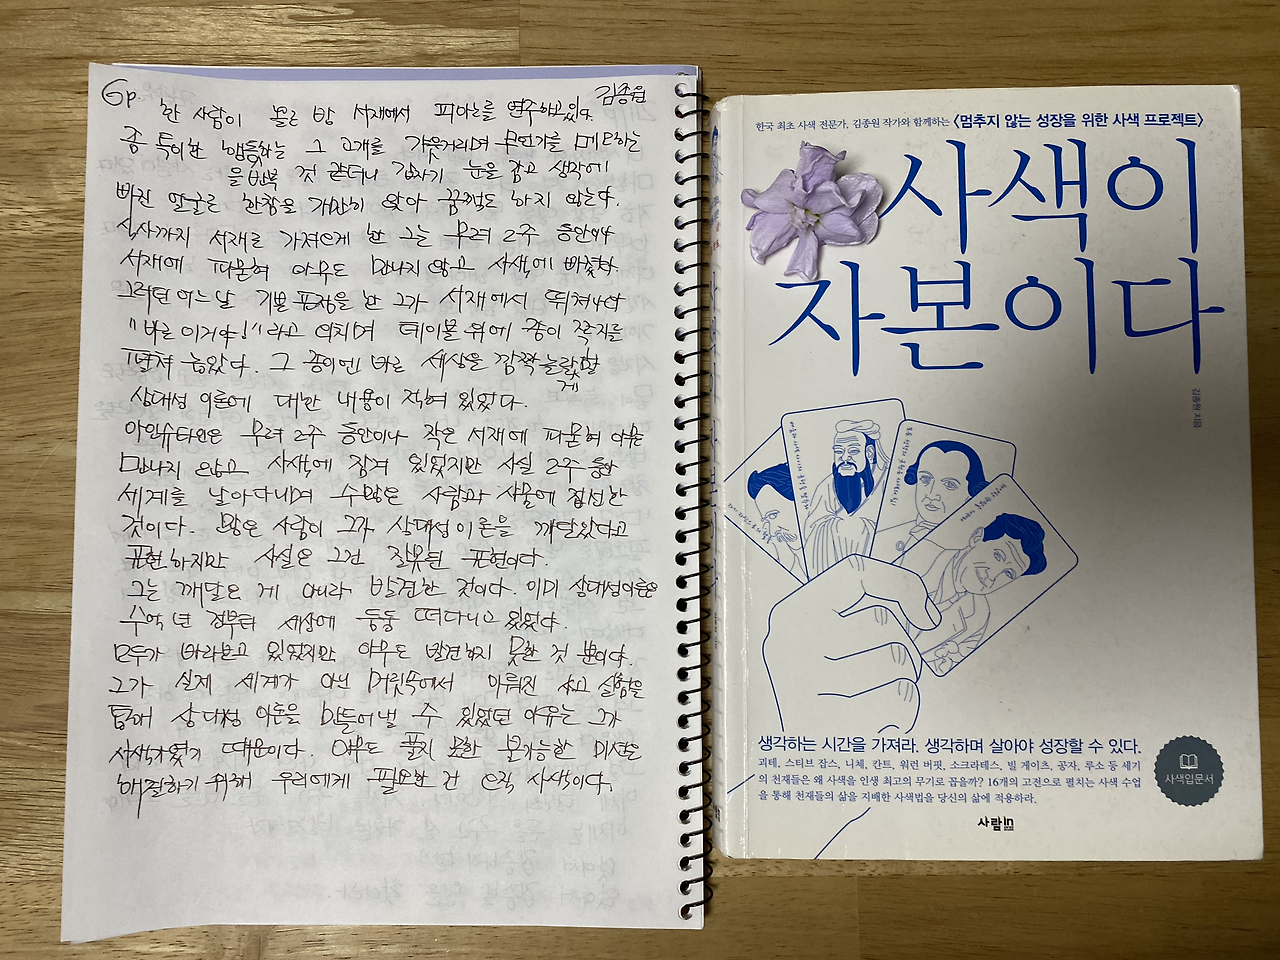 6p. 한 사람이 늦은 밤 서재에서 피아노를 연주하고 있다. 김종원
좀 특이한 행동하는 그 고개를 갸웃거리며 무언가를 메모하는
을 반복 것 같더니 갑자기 눈을 감고 생각에
빠진 얼굴로 한참을 가만히 앉아 꿈쩍도 하지 않는다.
식사까지 서재로 가져오게 한 그는 무려 2주 동안이나
서재에 파묻혀 아무도 만나지 않고 사색에 빠졌다.
그러던 어느날 기쁜 표정을 한 그가 서재에서 뛰쳐나와
"바로 이거야!"라고 외치며 테이블 위에 종이 작지를
펼쳐 놓았다. 그 종이엔 바로 세상을 깜짝 놀랄할
게
상대성 이론에 대한 내용이 적혀 있었다.
아인슈타인은 무려 2주 동안이나 작은 서재에 파묻혀 아무도
만나지 않고 사색에 잠겨 있었지만 사실 2주 동안
세계를 날아다니며 수많은 사람과 사물에 접신한
것이다. 많은 사람이 그가 상대성이론을 깨달았다고
표현하지만 사실은 그건 잘못된 표현이다.
그는 깨달은 게 아니라 발견한 것이다. 이미 상대성이론은
수억 년 전부터 세상에 둥둥 떠다니고 있었다.
모두가 바라보고 있었지만 아무도 발견하지 못한 것 뿐이다.
그가 실제 세계가 아닌 머릿속에서 이뤄진 사고 실험을
통해 상대성 이론을 만들어낼 수 있었던 이유는 그가
사색가였기 때문이다. 아무도 풀지 못한 불가능한 미션을
해결하기 위해 우리에게 필요한 건 오직 사색이다.
한국 최초 사색 전문가, 김종원 작가와 함께하는 〈멈추지 않는 성장을 위한 사색 프로젝트〉
사색이
자본이다
김종원 지음
생각하는 시간을 가져라. 생각하며 살아야 성장할 수 있다.
괴테, 스티브 잡스, 니체, 칸트, 워런 버핏, 소크라테스, 빌 게이츠, 공자, 루소 등 세기
의 천재들은 왜 사색을 인생 최고의 무기로 꼽을까? 16개의 고전으로 펼치는 사색 수업
을 통해 천재들의 삶을 지배한 사색법을 당신의 삶에 적용하라.
사색입문서
사람in